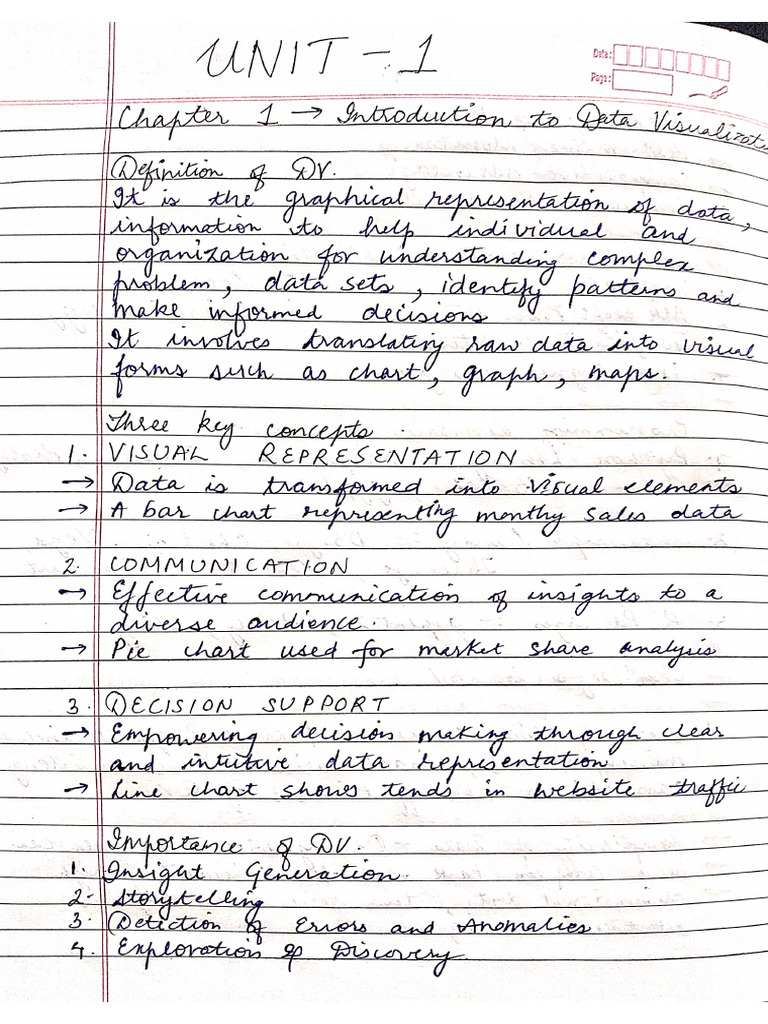 UNIT - 1
Date:
Page:
Chapter 1 → Introduction to Data Visualizati
Definition of DV.
It is the graphical representation of data,
information to help individual and
organization for understanding complex
problem, data sets, identify patterns and
make informed decisions
It involves translating raw data into visual
forms such as chart, graph, maps.
Three key concepts.
1. VISUAL REPRESENTATION
→ Data is transformed into visual elements
→ A bar chart representing monthy sales data
2. COMMUNICATION
→ Effective communication of insights to a
diverse audience.
→ Pie chart used for market share analysis
3. DECISION SUPPORT
→ Empowering decision making through clear
and intutive data representation
→ Line chart shows tends in website traffic
Importance of DV.
1. Insight Generation.
2- Storytelling
3. Detection of Errors and Anomalies
4. Exploration & Discovery